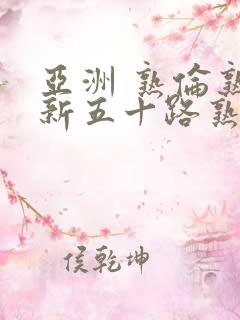 亞洲 熟倫熟
新五十路熟
侯乾坤